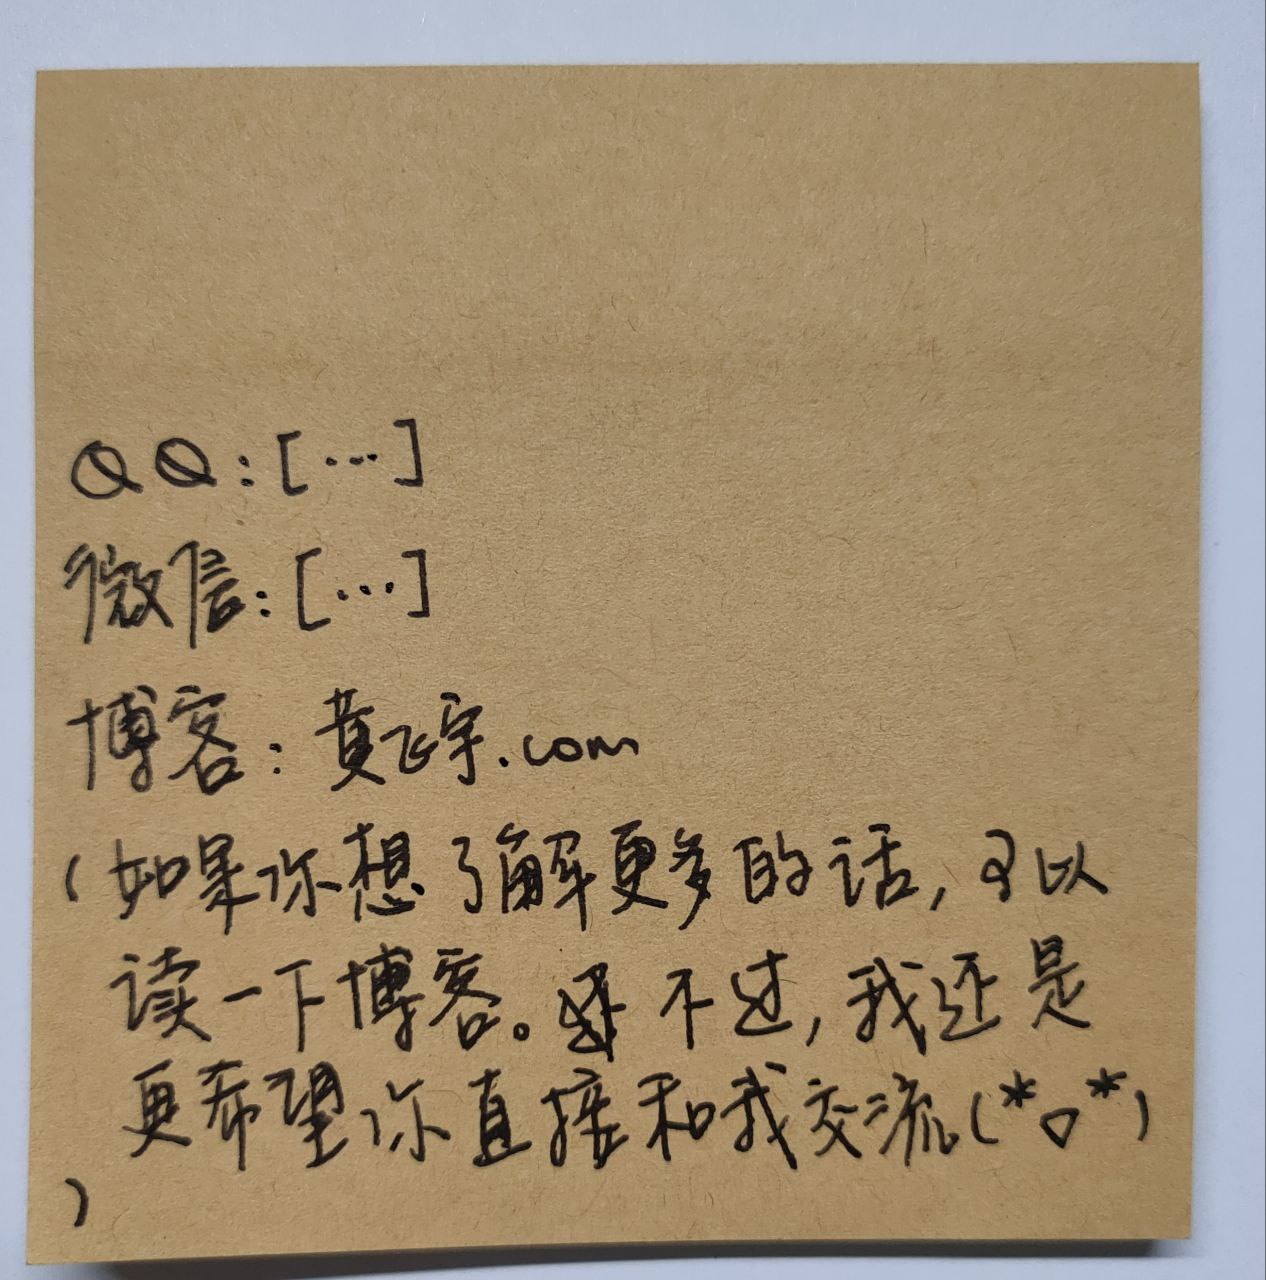 QQ:[…]
微信:[…]
博客:黄飞宇.com
(如果你想了解更多的话,可以
读一下博客。不过,我还是
更希望你直接和我交流(*▽*)
)